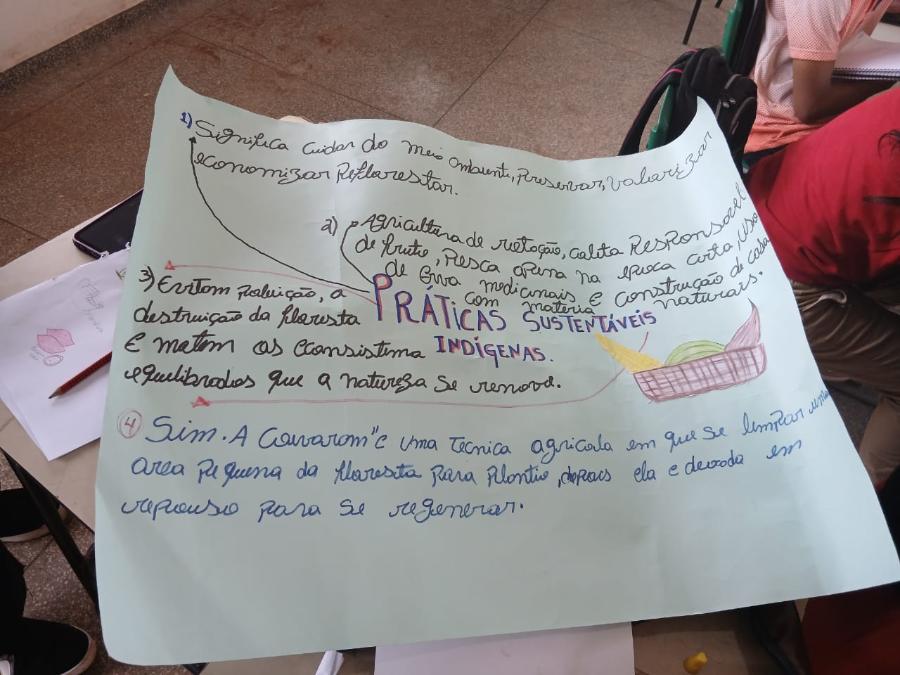 1) Significa Cuidar do meio ambiente, Preservar, Valorizar
economizar Reflorestar.
2) Agricultura de rotação, coleta Responsavel
de fruto, Pesca apena na epoca certa, uso
de Erva medicinais e construção de casa
com materia naturais.
PRÁTICAS SUSTENTÁVEIS
INDÍGENAS.
3) Evitam poluição, a
destruição da floresta
E matem os econsistema
equelibrados que a natureza se renova.
4 Sim. A
e uma Tecnica agricola em que se limpar uma
area pequena da floresta para Plantio, depois ela e deixada em
repouso para se regenerar.